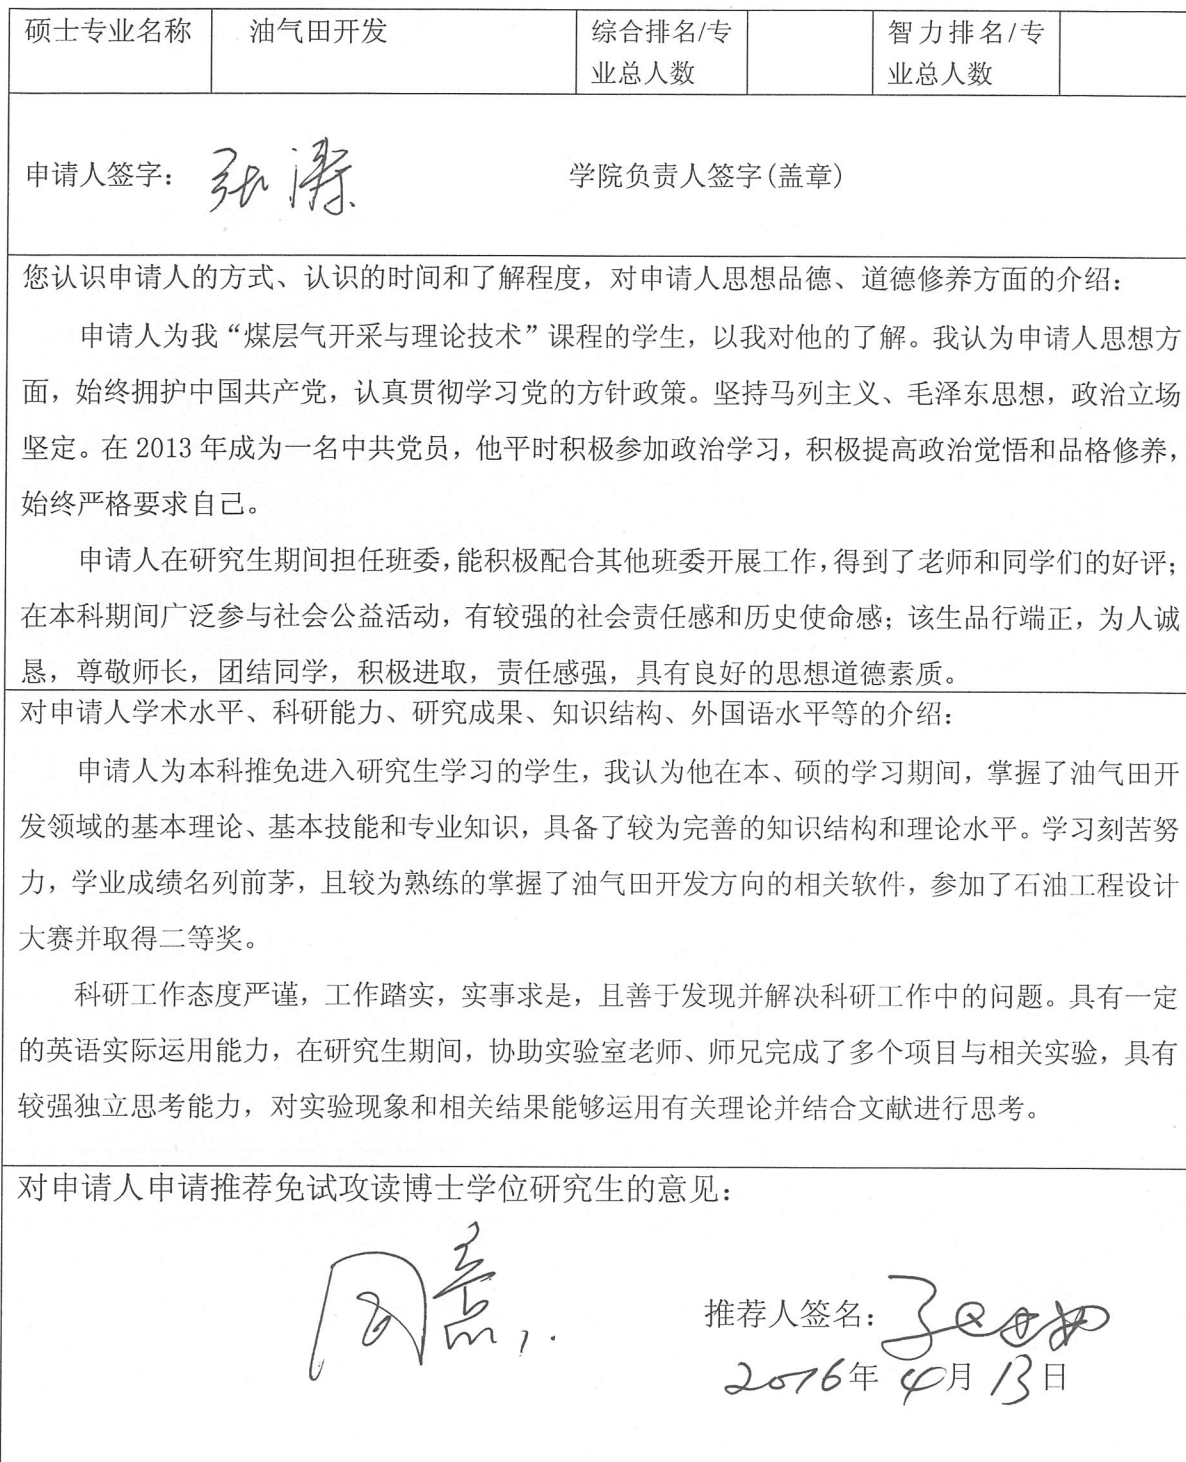 硕士专业名称 油气田开发 综合排名/专 智力排名/专
业总人数 业总人数
申请人签字： 张涛 学院负责人签字(盖章)
您认识申请人的方式、认识的时间和了解程度，对申请人思想品德、道德修养方面的介绍：
申请人为我“煤层气开采与理论技术”课程的学生，以我对他的了解。我认为申请人思想方
面，始终拥护中国共产党，认真贯彻学习党的方针政策。坚持马列主义、毛泽东思想，政治立场
坚定。在 2013 年成为一名中共党员，他平时积极参加政治学习，积极提高政治觉悟和品格修养，
始终严格要求自己。
申请人在研究生期间担任班委，能积极配合其他班委开展工作，得到了老师和同学们的好评；
在本科期间广泛参与社会公益活动，有较强的社会责任感和历史使命感；该生品行端正，为人诚
恳，尊敬师长，团结同学，积极进取，责任感强，具有良好的思想道德素质。
对申请人学术水平、科研能力、研究成果、知识结构、外国语水平等的介绍：
申请人为本科推免进入研究生学习的学生，我认为他在本、硕的学习期间，掌握了油气田开
发领域的基本理论、基本技能和专业知识，具备了较为完善的知识结构和理论水平。学习刻苦努
力，学业成绩名列前茅，且较为熟练的掌握了油气田开发方向的相关软件，参加了石油工程设计
大赛并取得二等奖。
科研工作态度严谨，工作踏实，实事求是，且善于发现并解决科研工作中的问题。具有一定
的英语实际运用能力，在研究生期间，协助实验室老师、师兄完成了多个项目与相关实验，具有
较强独立思考能力，对实验现象和相关结果能够运用有关理论并结合文献进行思考。
对申请人申请推荐免试攻读博士学位研究生的意见：
同意，.
推荐人签名：
2016年 4月 13日